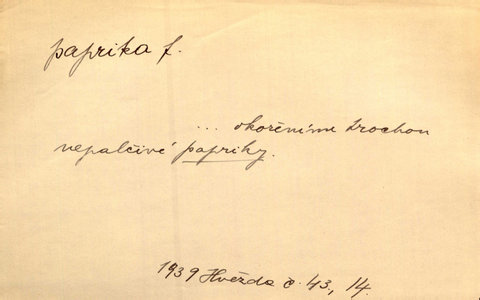 paprika f.
... okořeníme trochou
nepalčivé papriky.
1939 Hvězda č. 43., 14